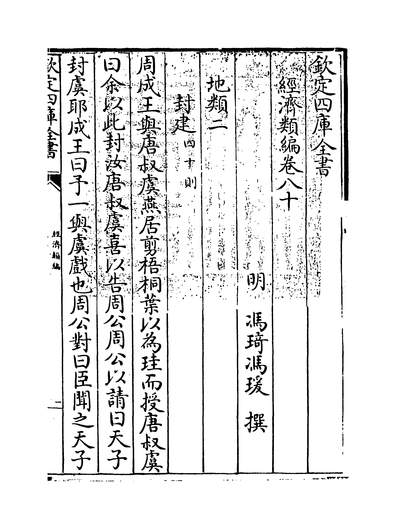 欽定四庫全書
經濟類編卷八十
明 馮琦馮瑗 撰
地類二
封建四十則
周成王與唐叔虞燕居剪梧桐葉以為珪而授唐叔虞
曰余以此封汝唐叔虞喜以告周公周公以請曰天子
封虞耶成王曰予一與虞戲也周公對曰臣聞之天子
欽定四庫全書
經濟類編